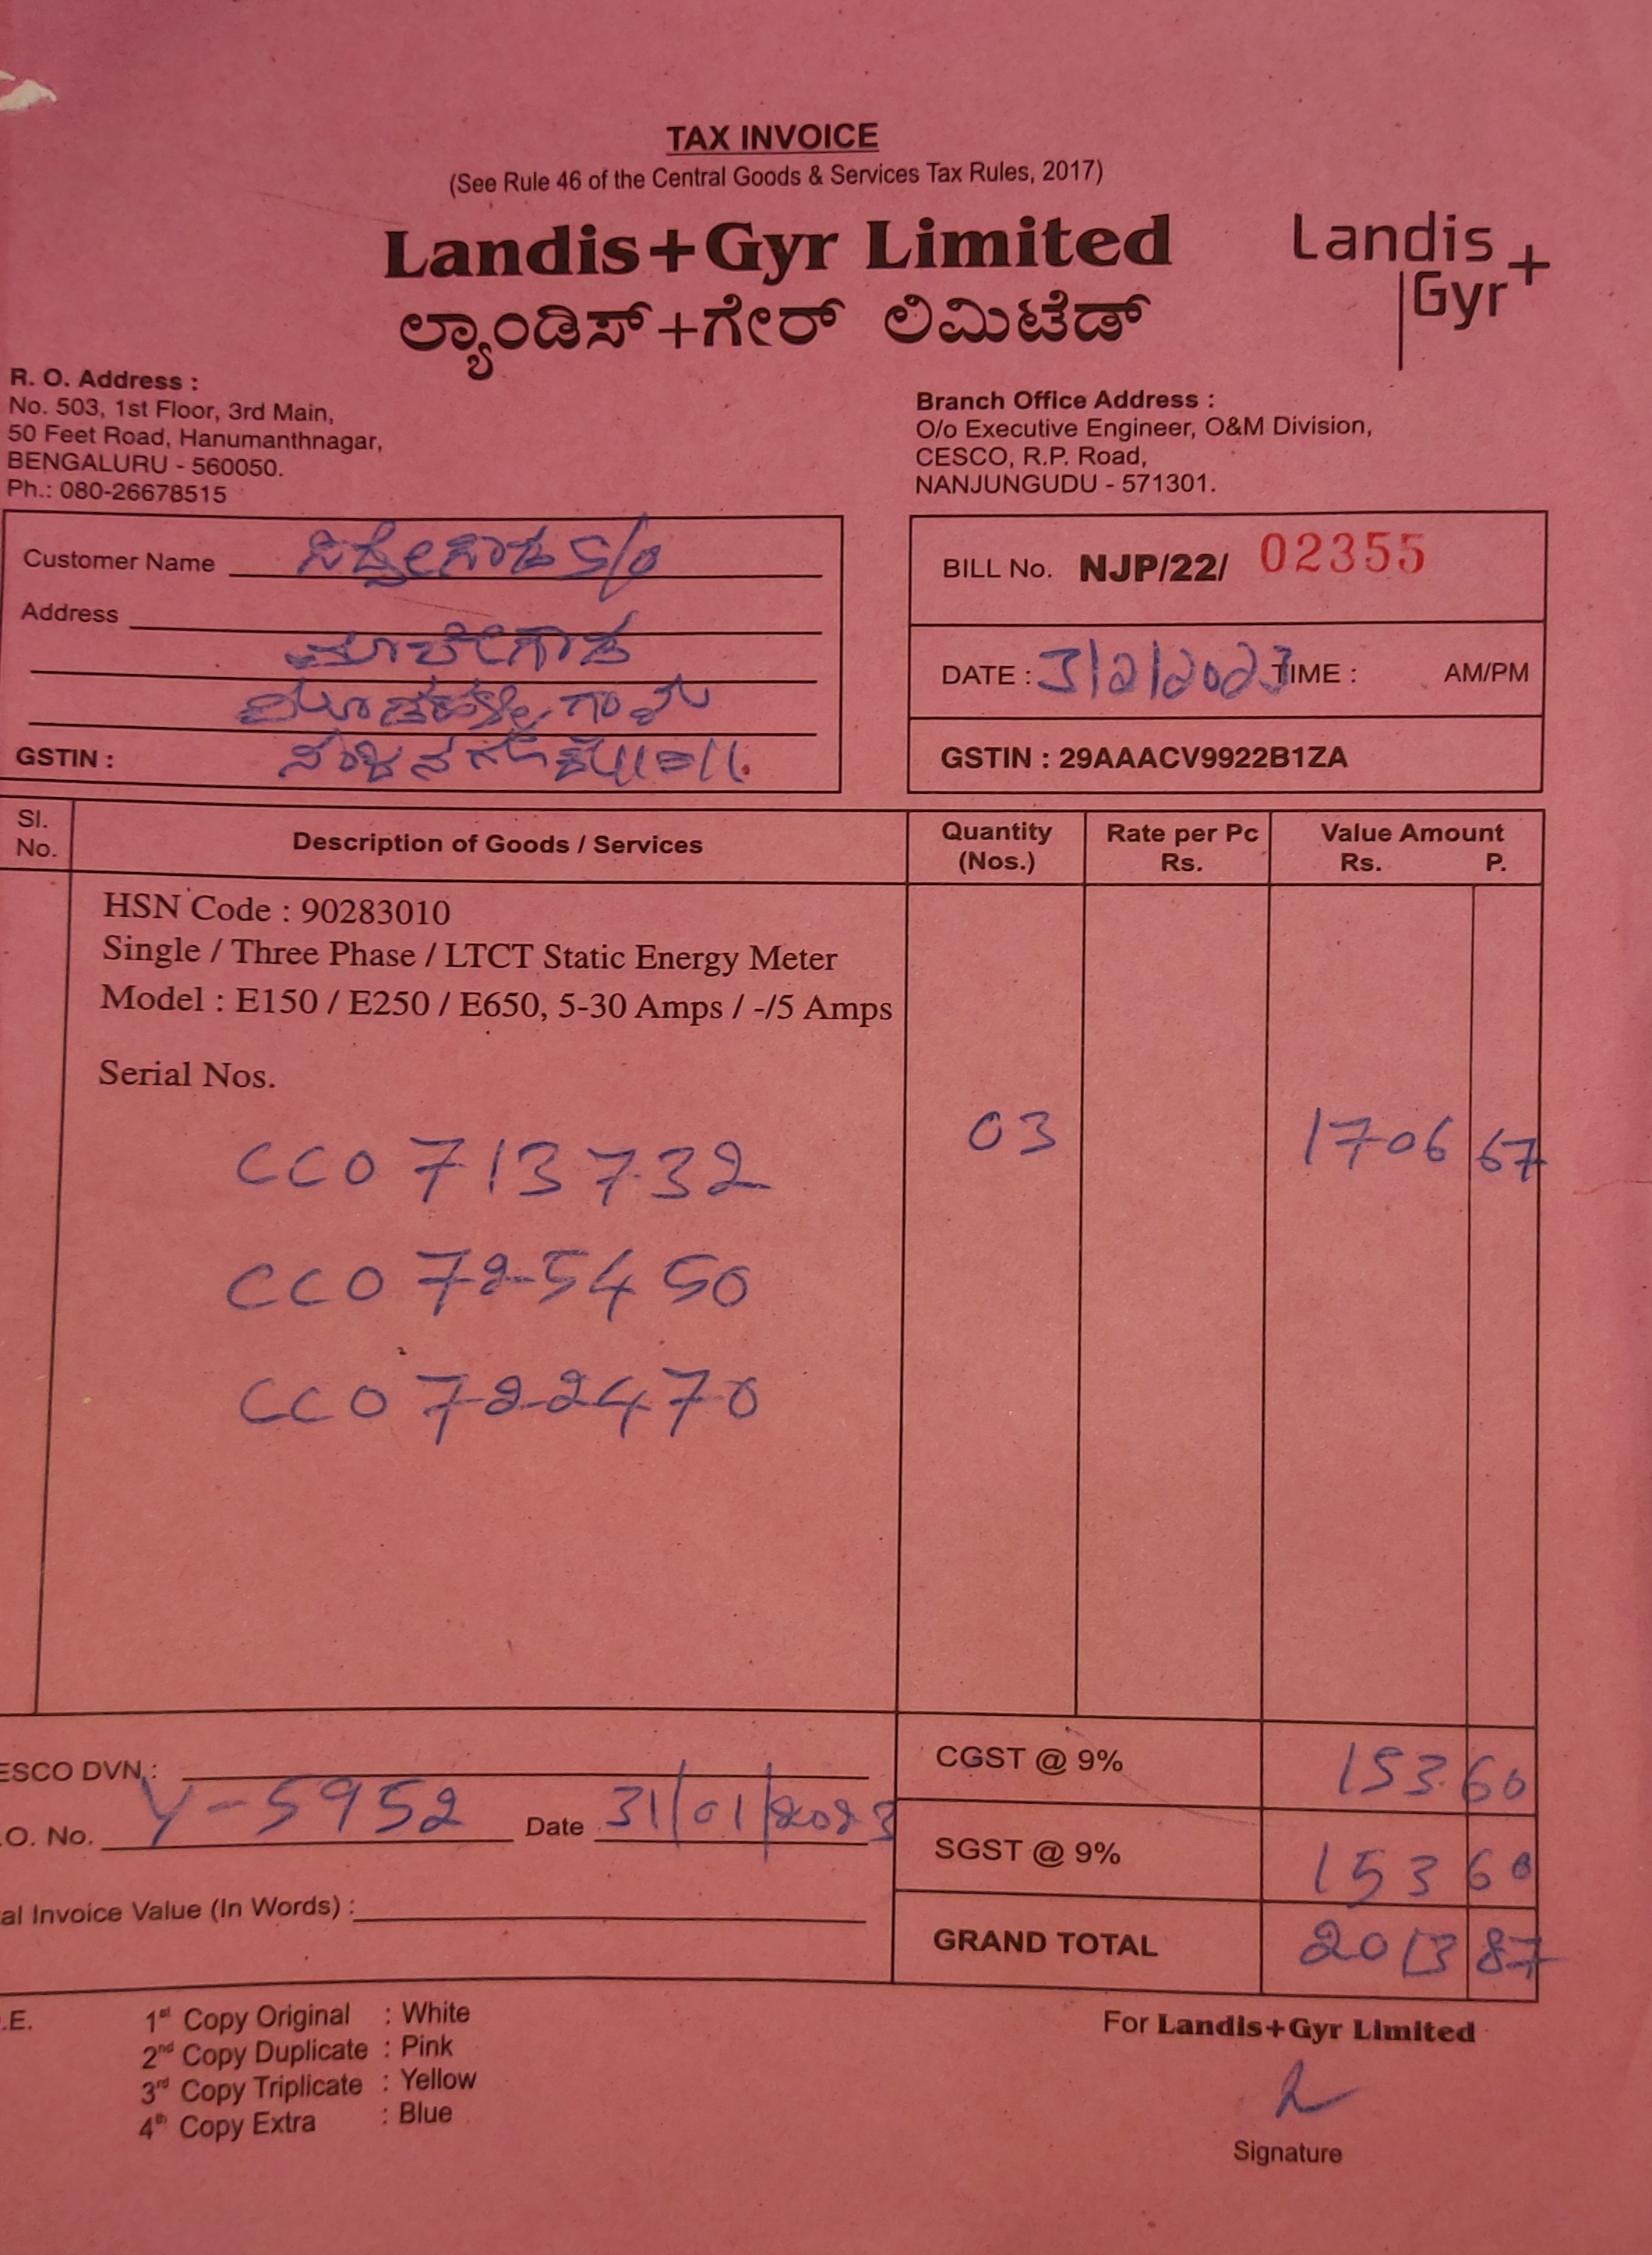 TAX INVOICE
(See Rule 46 of the Central Goods & Services Tax Rules, 2017)
Landis+Gyr Limited
ಲ್ಯಾಂಡಿಸ್+ಗೇರ್ ಲಿಮಿಟೆಡ್
Landis
Gyr+
R. O. Address :
No. 503, 1st Floor, 3rd Main,
50 Feet Road, Hanumanthnagar,
BENGALURU - 560050.
Ph.: 080-26678515
Branch Office Address :
O/o Executive Engineer, O&M Division,
CESCO, R.P. Road,
NANJUNGUDU - 571301.
Customer Name S/o
Address
GSTIN :
BILL No. NJP/22/ 02355
DATE : 3/2/2023 TIME : AM/PM
GSTIN : 29AAACV9922B1ZA
Sl. No. Description of Goods / Services Quantity (Nos.) Rate per Pc Rs. Value Amount Rs. P.
HSN Code : 90283010
Single / Three Phase / LTCT Static Energy Meter
Model : E150 / E250 / E650, 5-30 Amps / -/5 Amps
Serial Nos.
CC0713732 03 1706 67
CC0725450
CC0722470
ESCO DVN.:
.O. No. Y-5952 Date 31/01/2023
al Invoice Value (In Words) :
CGST @ 9% 153 60
SGST @ 9% 153 60
GRAND TOTAL 2013 87
.E.
1st Copy Original : White
2nd Copy Duplicate : Pink
3rd Copy Triplicate : Yellow
4th Copy Extra : Blue
For Landis+Gyr Limited
Signature